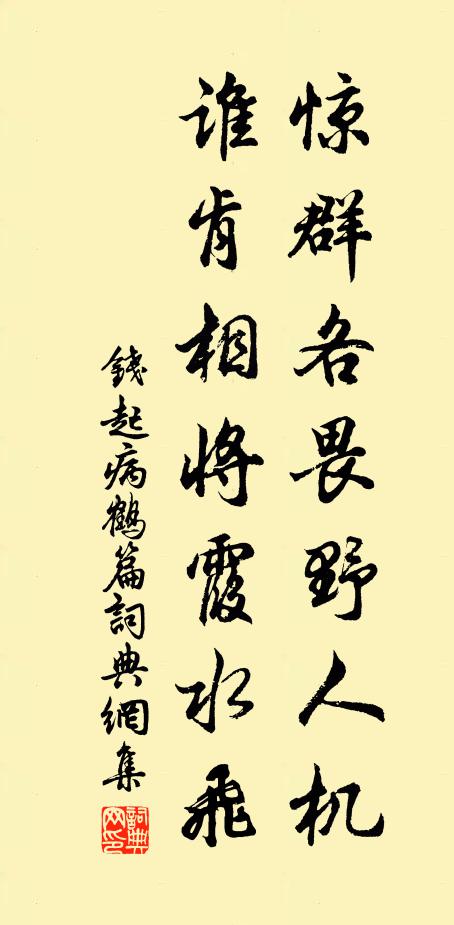 惊群各畏野人机
谁肯相将霞水飛
錢起病鶴篇詞典網集
詞典網印